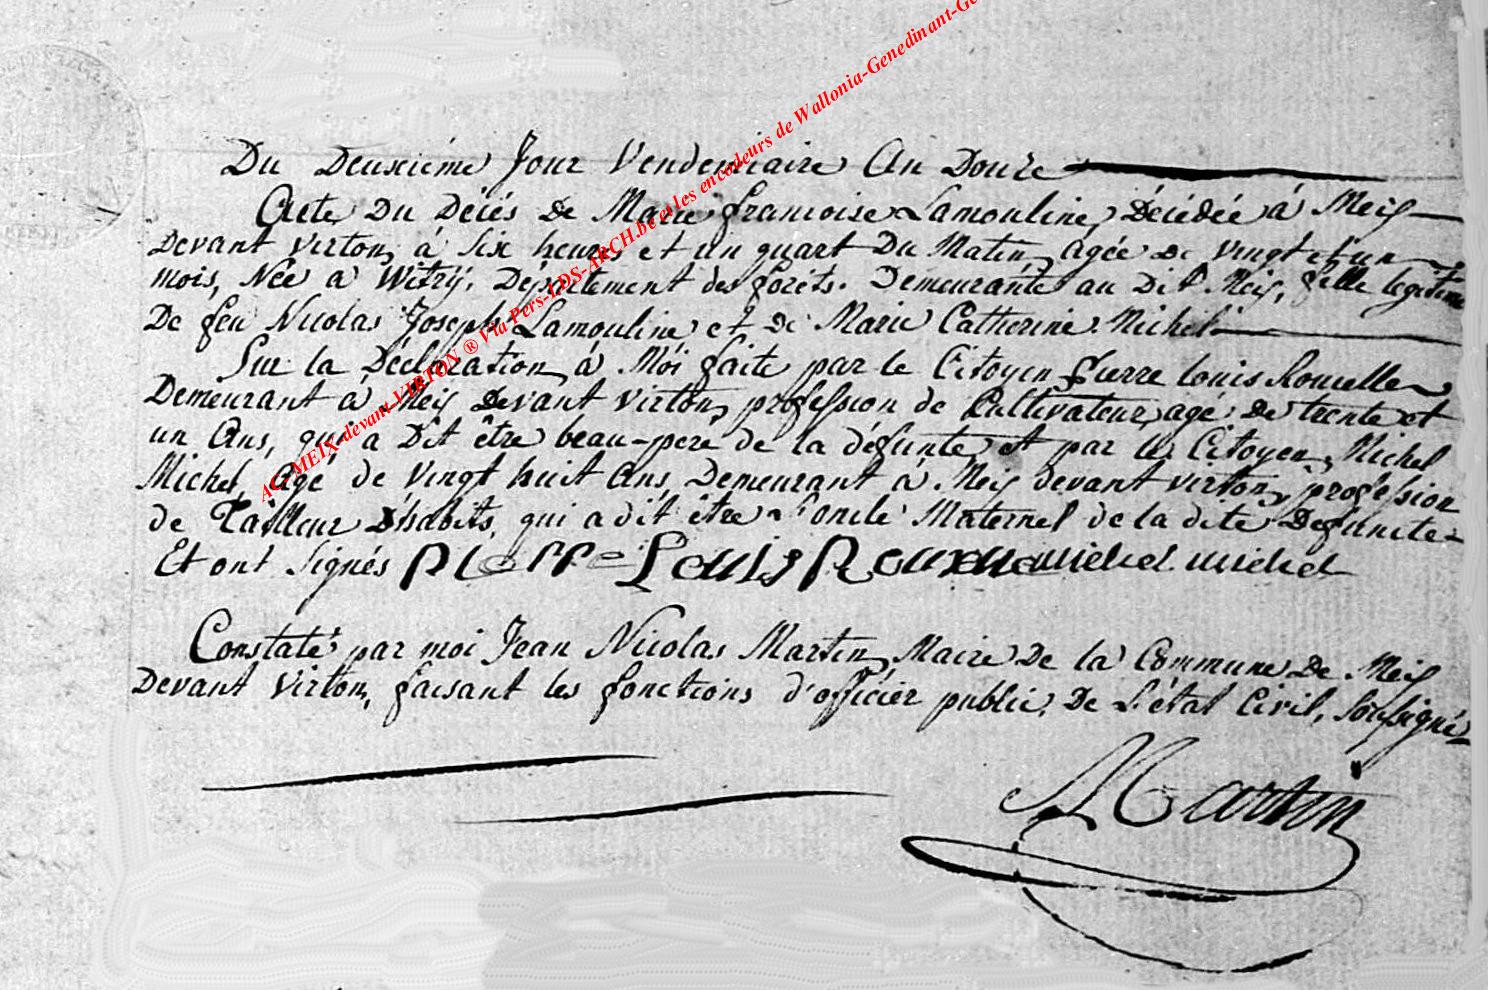 Du Deuxiéme Jour Vendemiaire An Douze
Acte Du Décés De Marie francoise Lamouline, Décédée à Meix
Devant virton, à Six heures et un quart Du Matin, agée de vingt et un
mois, Née à Witrÿ, Département des forèts. Demeurante au Dit Meix, fille legitime
De feu Nicolas Joseph Lamouline et de Marie Catherine Michel.
Sur la Déclaration à Moi faite par le Citoyen pierre louis
Demeurant à Meix Devant virton, profession de Cultivateur, agé de trente et
un Ans, qui a Dit être beau-pere de la défunte et par le Citoyen Michel
Michel, Agé de Vingt huit Ans Demeurant à Meix devant virton, profession
de Tailleur D'habits, qui a dit être l'oncle Maternel de la dite Defuncte
Et ont Signés pierre Louis michel michel
Constaté par moi Jean Nicolas Martin, Maire De la Commune De Meix
Devant Virton, faisant les fonctions d'officier public, De L'état Civil, Soussigné
Martin
AC MEIX-devant-VIRTON ® Via Pers-LDS-ARCH.be et les encodeurs de Wallonia-Genedinant-Ge